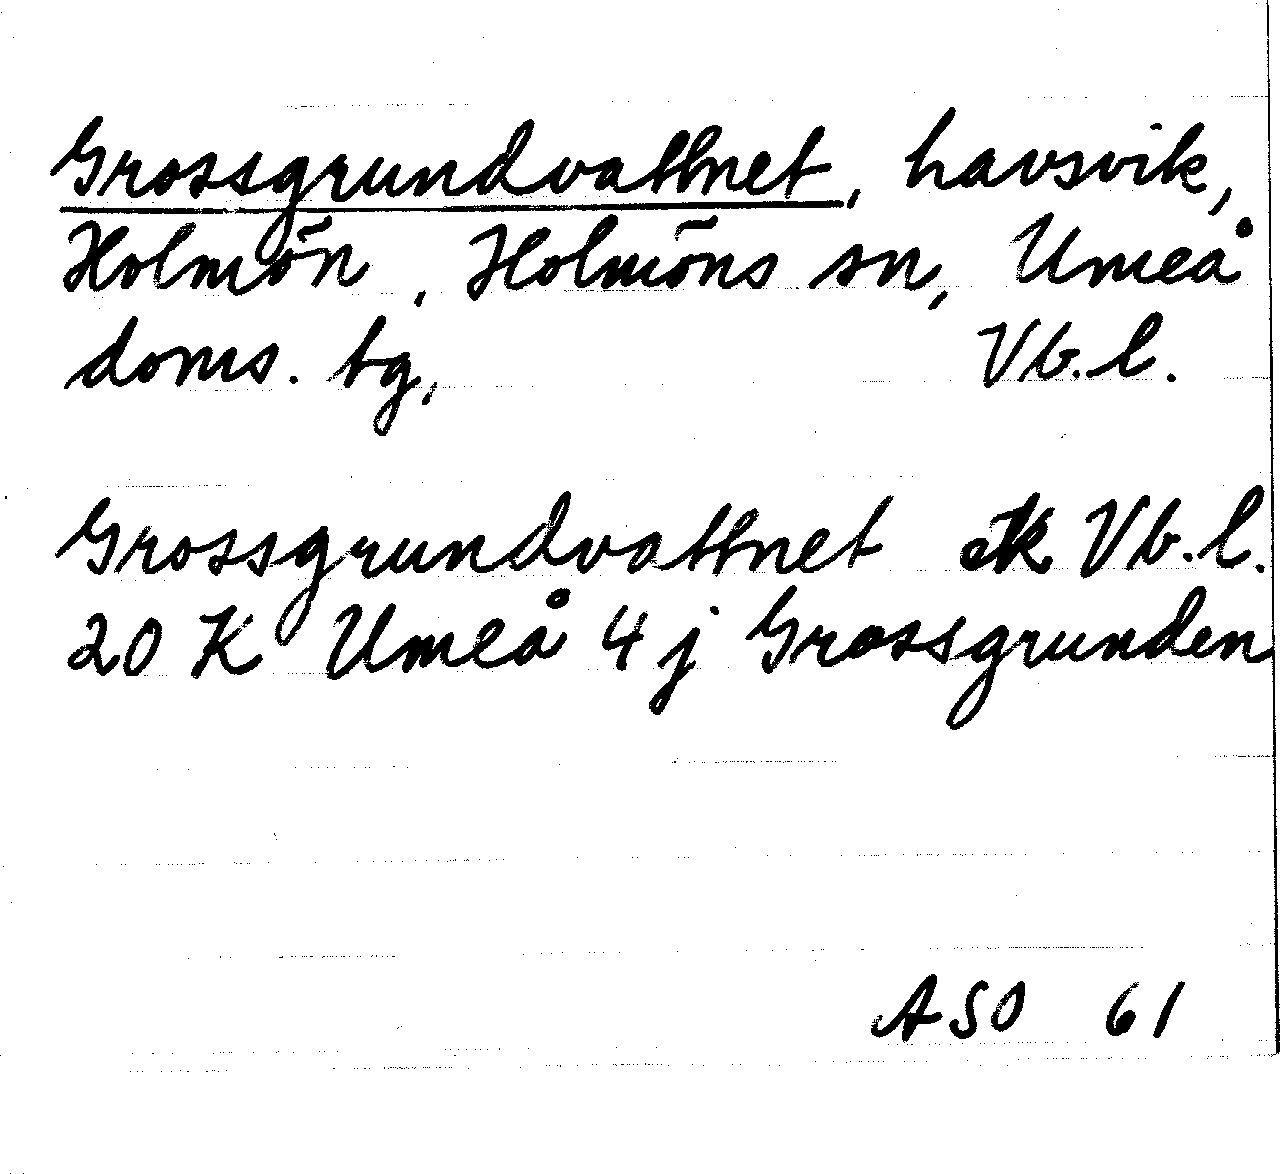 Grossgrundvattnet, havsvik,
Holmön, Holmöns sn, Umeå
doms. tg, Vb.l.
Grossgrundvattnet ek Vb.l.
20 K Umeå 4 j Grossgrunden
ASO 61